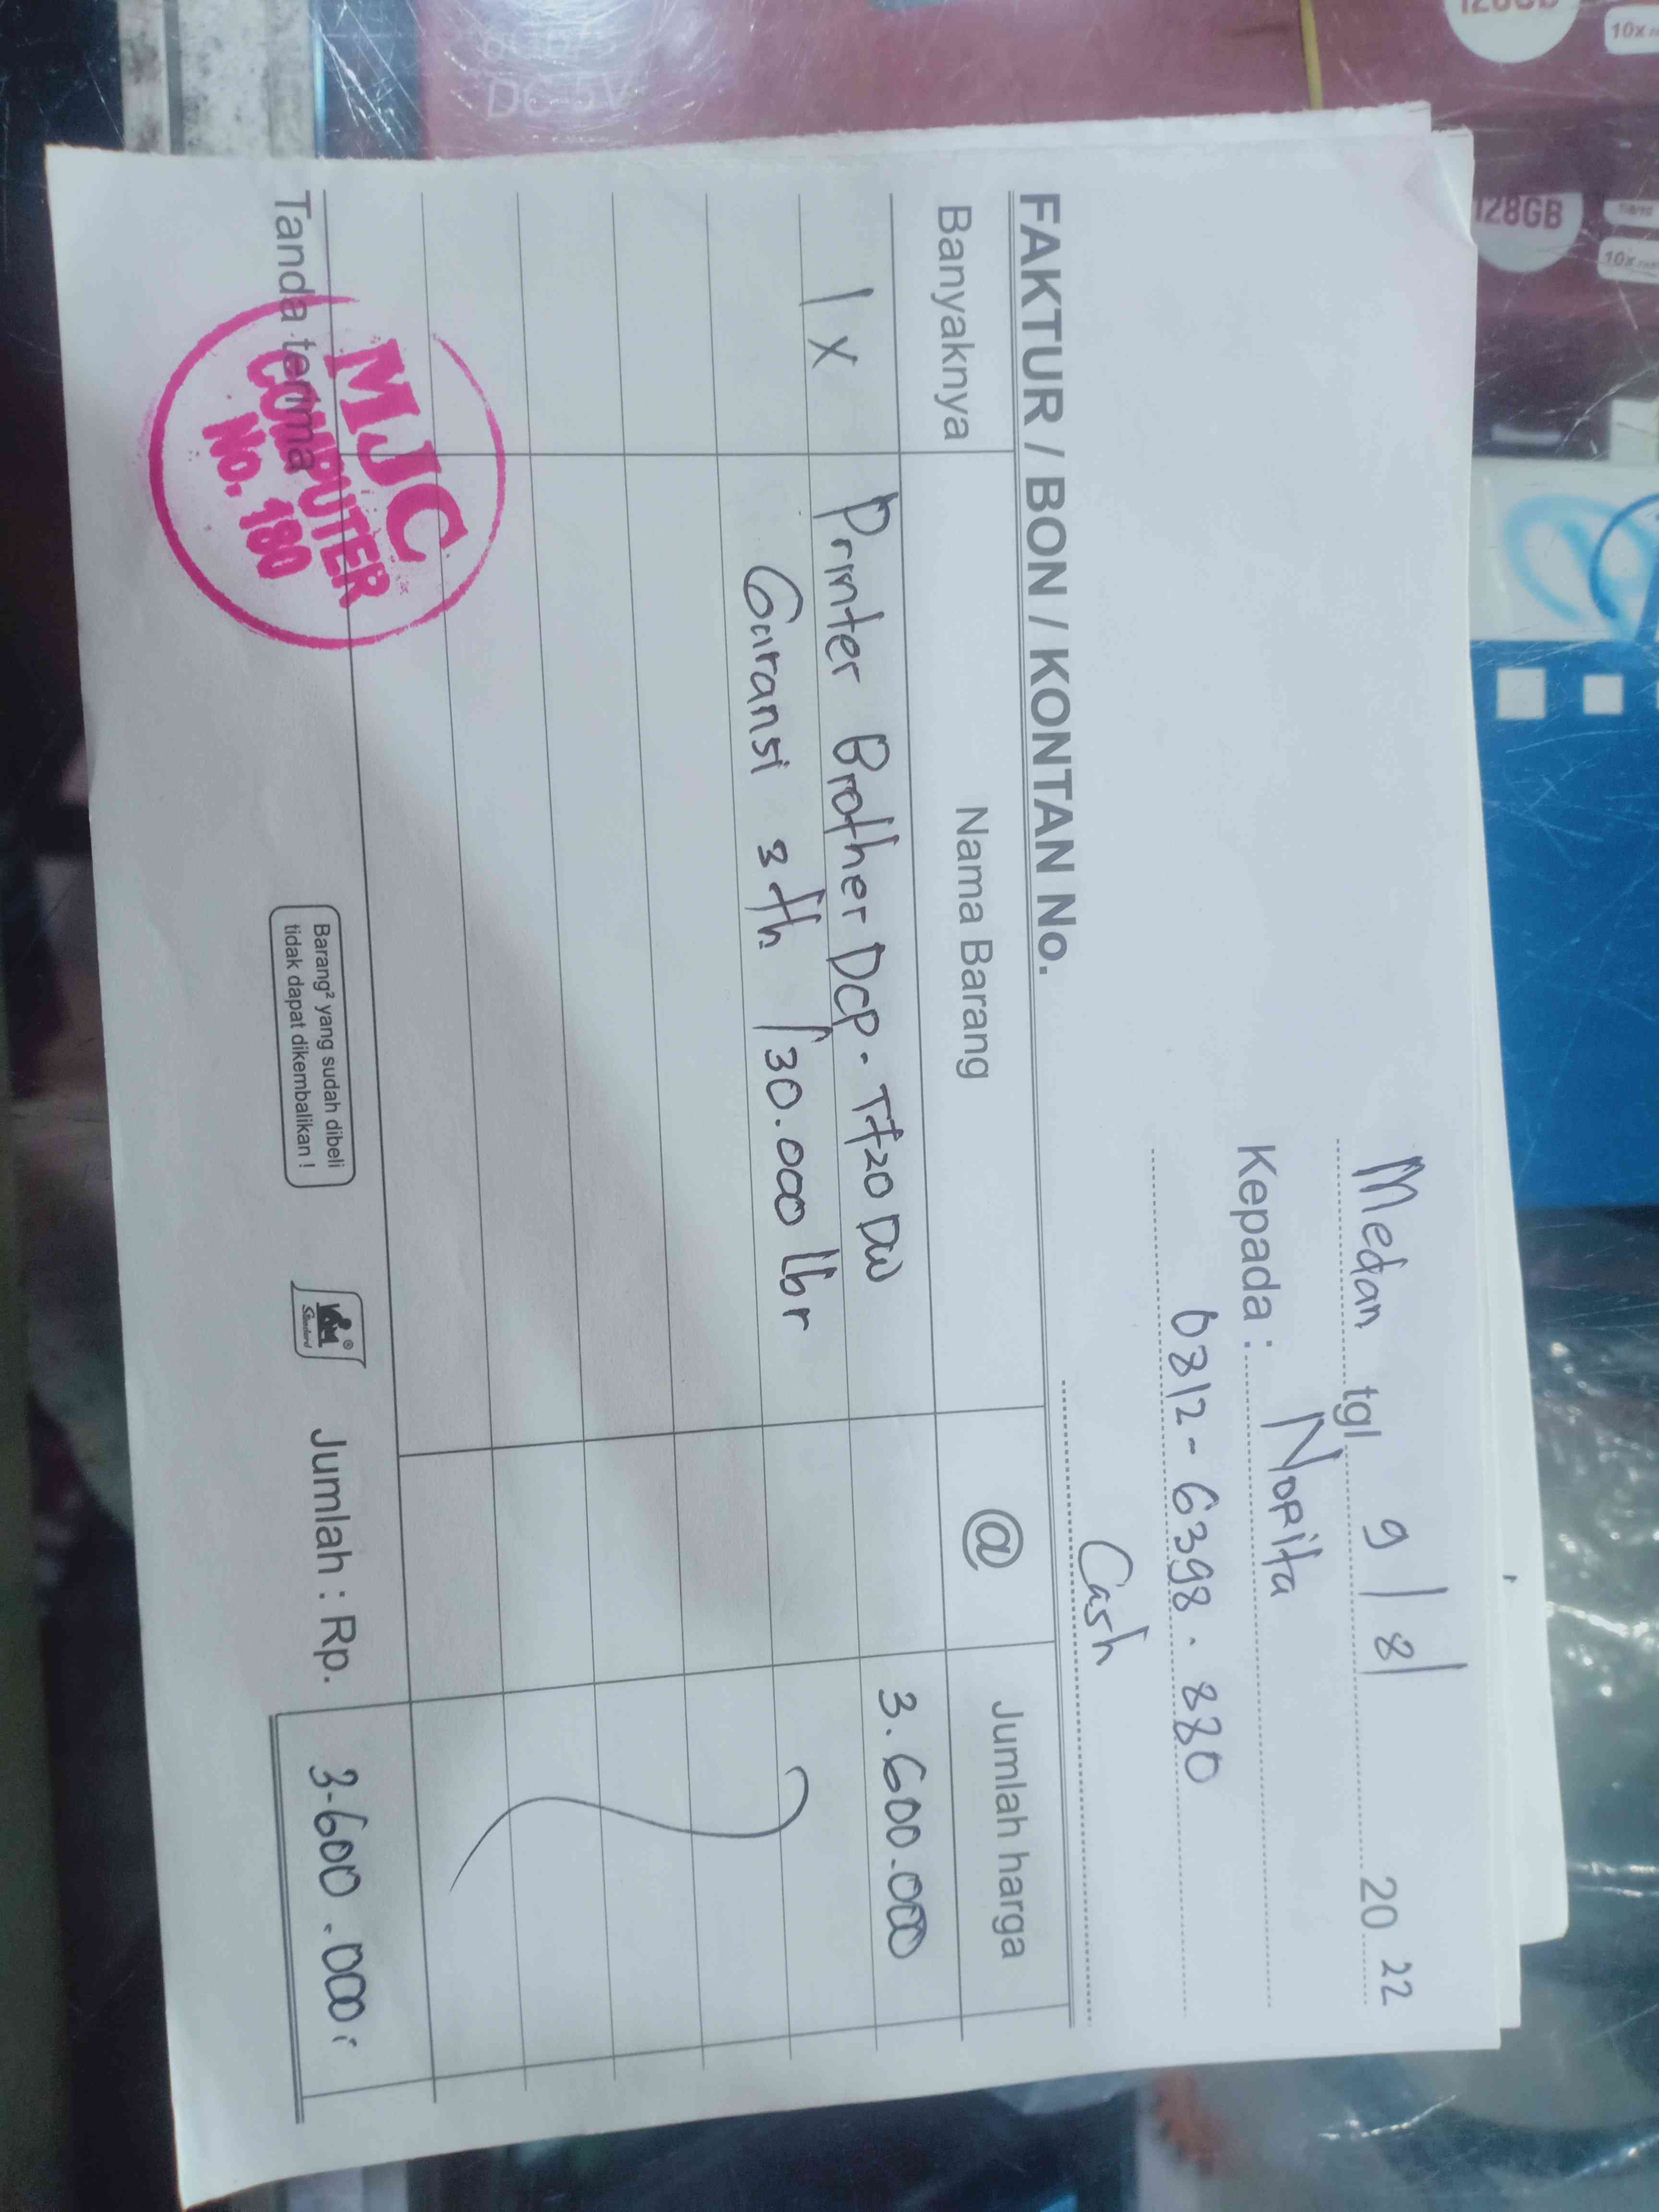 Medan tgl 9/8/ 2022
Kepada : Norita
0812-6398.880
Cash
FAKTUR / BON / KONTAN No.
Banyaknya Nama Barang @ Jumlah harga
1 x Printer Brother Dcp. T720 DW 3.600.000
Garansi 3 th / 30.000 lbr
Tanda terima
MJC
COMPUTER
No. 180
Barang² yang sudah dibeli
tidak dapat dikembalikan !
Standard
Jumlah : Rp. 3.600.000
DC 5V
128GB
10x
128GB
10x